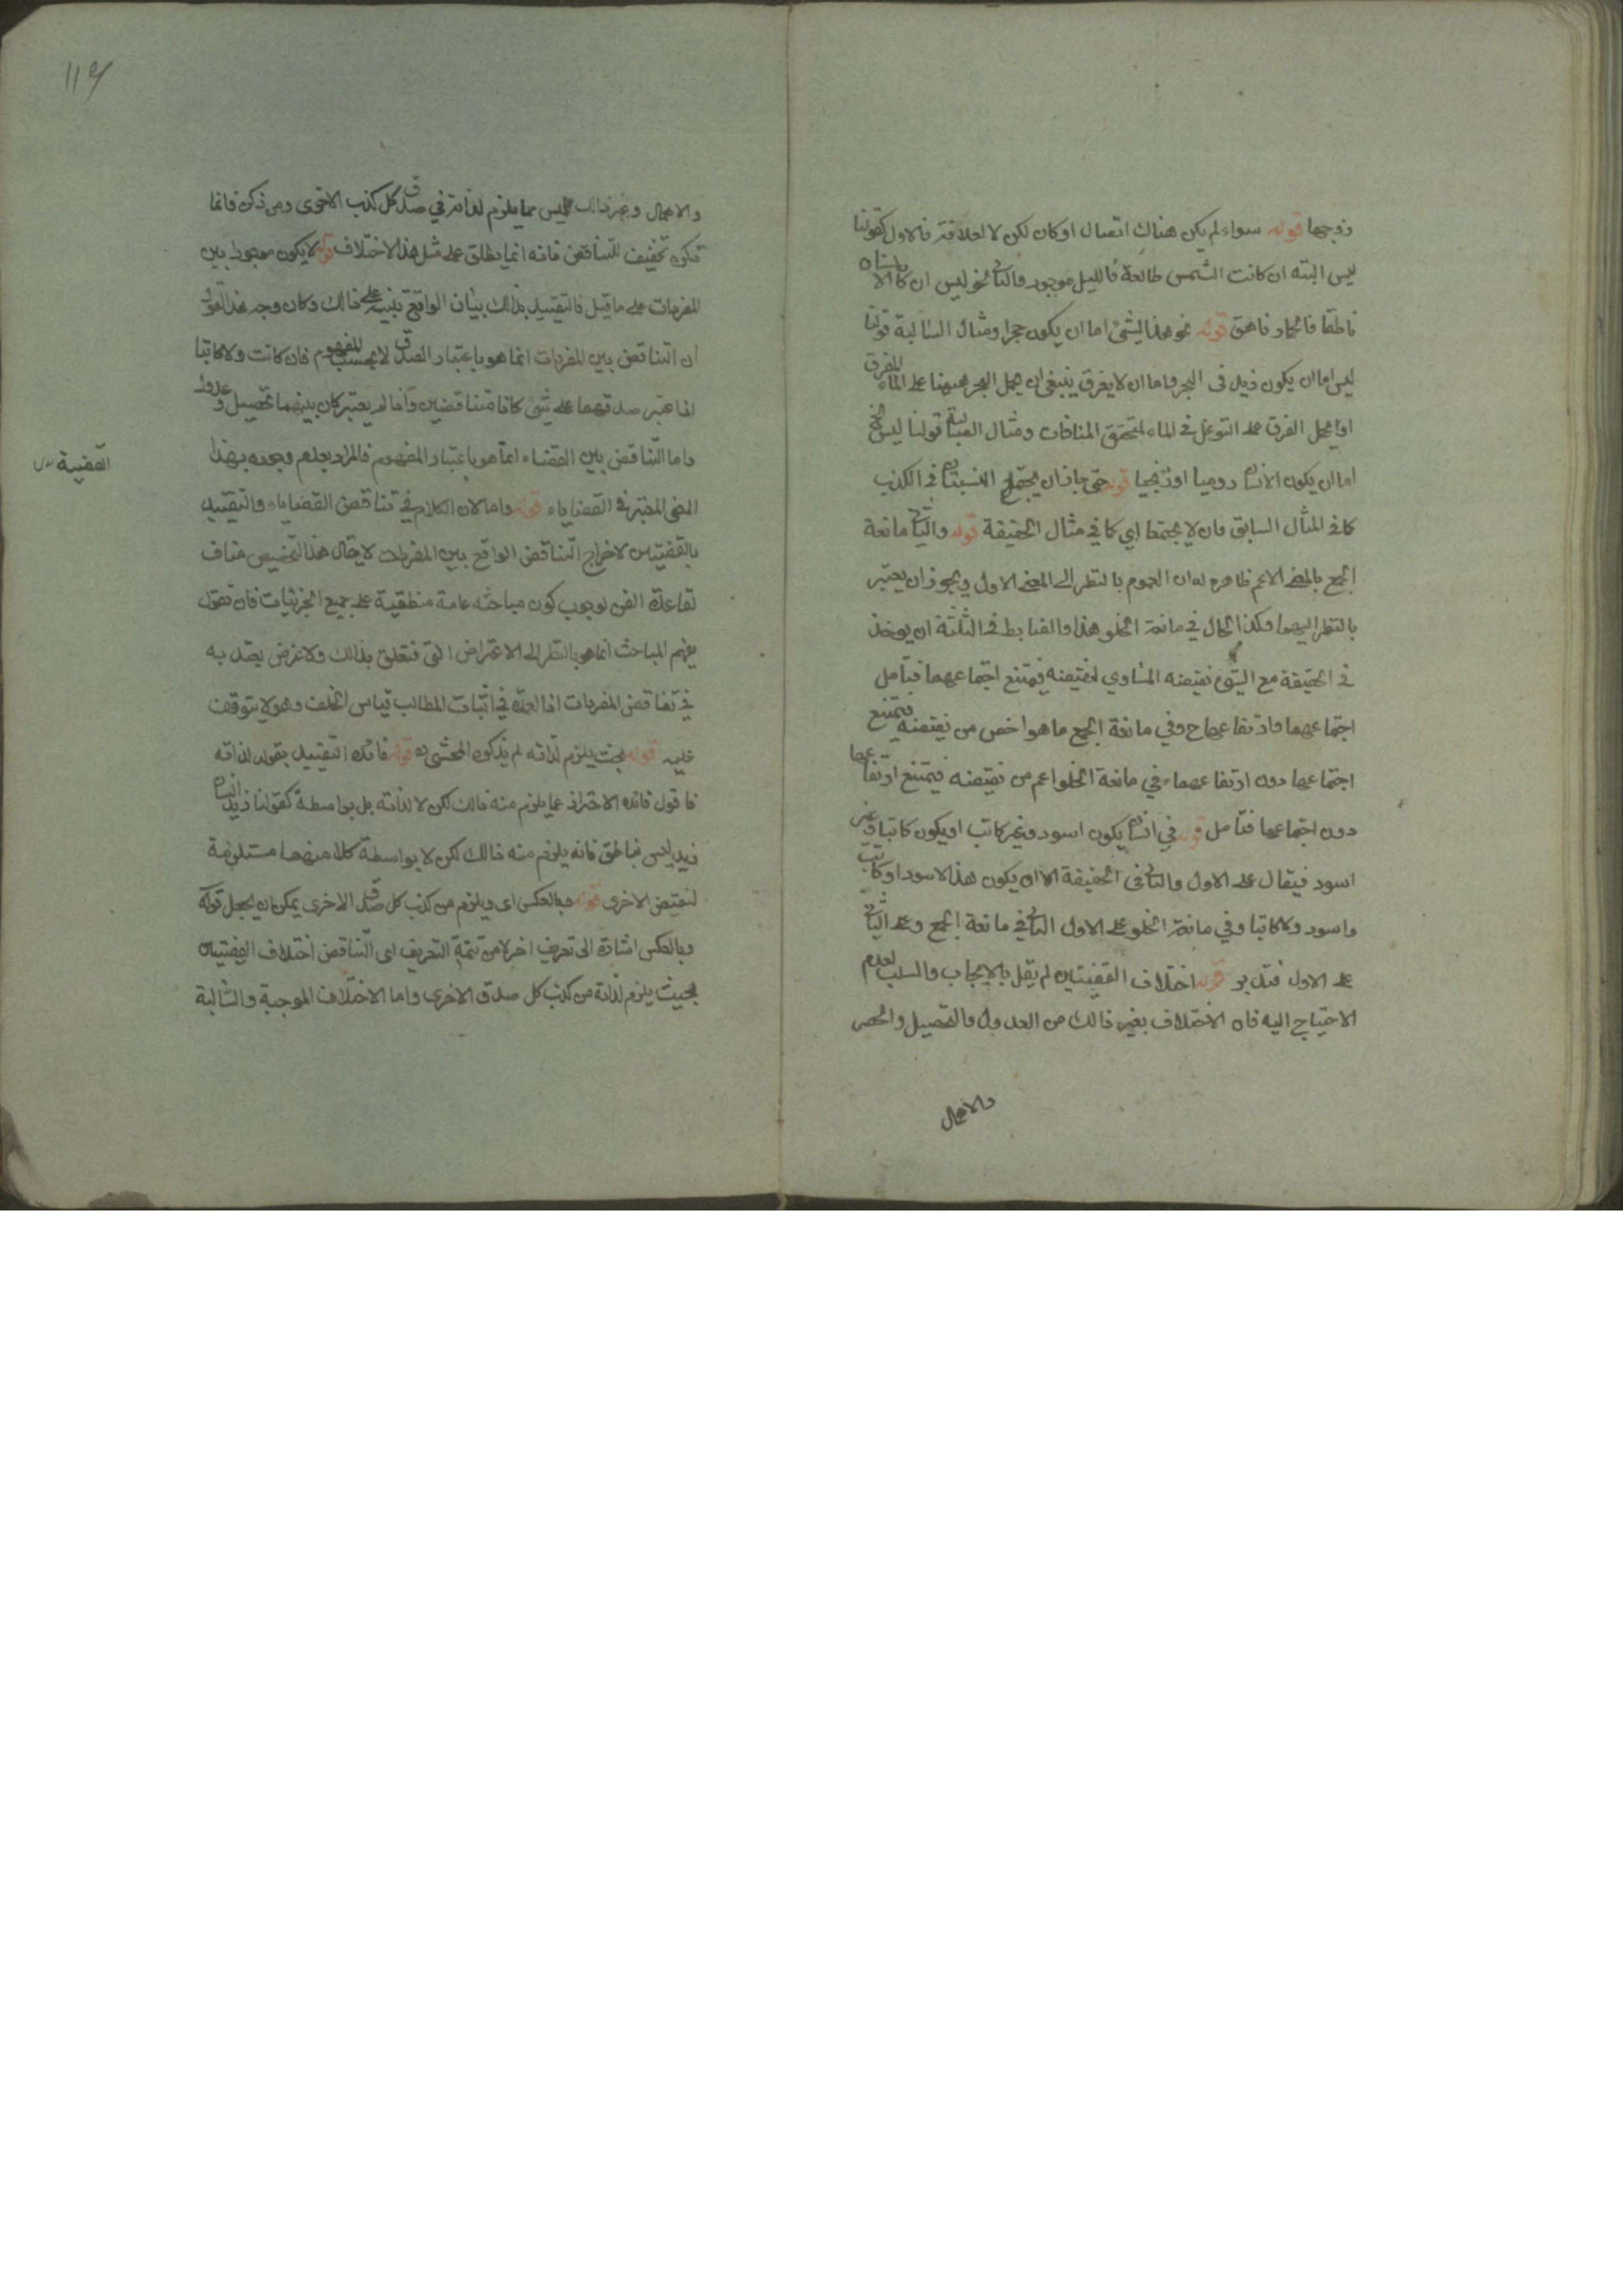 زوجها قوله سواء لم يكن هناك اتصال او كان لكن لا لعلاقة فالاول كقولنا
ليس البته ان كانت الشمس طالعة فالليل موجود والثاني نحو ليس ان كان الانسان
ناطقا فالحمار ناهق قوله نحو هذا الشئ اما ان يكون حجرا ومثال السالبة قولنا
ليس اما ان يكون زيد في البحر واما ان لا يغرق ينبغي ان يحمل البحر ههنا على الماء المغرق
او يحمل الغرق على التوغل في الماء لتحقق المنافات ومثال السالبة قولنا ليس
اما ان يكون الانسان روميا او زنجيا قوله حتى جاز ان يجتمع النسبتان في الكذب
كما في المثال السابق وان لا يجتمعا اي كما في مثال الحقيقة قوله والثاني مانعة
الجمع بالمعنى الاعم ظاهره ان العموم بالنظر الى المعنى الاول ويجوز ان يعتبر
بالنظر اليهما وكذا الحال في مانعة الخلو هذا والضابط في الثلثة ان يوخذ
في الحقيقة مع الشئ نقيضه المساوي لنقيضه فيمتنع اجتماعهما فتامل
اجتماعهما وارتفاعهما ح وفي مانعة الجمع ما هو اخص من نقيضه فيمتنع
اجتماعهما دون ارتفاعهما وفي مانعة الخلو اعم من نقيضه فيمتنع ارتفاعهما
دون اجتماعهما فتامل قوله في انسان يكون اسود وغير كاتب او يكون كاتبا وغير
اسود فيقال على الاول والثاني في الحقيقة الا ان يكون هذا الاسود او كاتب
واسود ولا كاتبا وفي مانعة الخلو على الاول الثاني في مانعة الجمع وعلى الثاني
على الاول فتدبر قوله اختلاف القضيتين لم يقل بالايجاب والسلب لعدم
الاحتياج اليه فان الاختلاف بغير ذالك من العدول والتحصيل والحصر
والاهمال
119
والاهمال وغير ذالك ليس مما يلزم لذاته في صدق كل كذب الاخرى ومن ذكره فانما
ذكره تخفيف للتناقض فانه انما يطلق على مثل هذا الاختلاف قوله لا يكون موجودا بين
المفردات على ما قيل فالتقييد بذالك بيان الواقع بنيه على ذالك وكان وجه هذا القول
ان التناقض بين المفردات انما هو باعتبار الصدق لا بحسب المفهوم فان كاتب ولا كاتبا
اذا اعتبر صدقهما على شئ كانا متناقضين واذا لم يعتبر كان بينهما تحصيل وعدول
واما التناقض بين القضاء انما هو باعتبار المفهوم فالمراد بعدم وجوده بهذا
المعنى المعتبر في القضاياء قوله واما لان الكلام في تناقض القضاياء والتقييد
القضية
بالقضيتين لاخراج التناقض الواقع بين المفردات لا يقال هذا التخصيص مناف
لقاعدة الفن لوجوب كون مباحثه عامة منطقية على جميع الجزئيات فان نقول
يفهم المباحث انما هو بالنظر الى الاعتراض التي فتعلق بذالك ولا غرض يعتد به
في تناقض المفردات اذا العمدة في اثبات المطالب قياس الخلف وهو لا يتوقف
عليه قوله بحيث يلزم لذاته لم يذكره المحشى قوله فائدة التقييد بقوله لذاته
فاقول فائدة الاحتراز عما يلزم منه ذالك لكن لا لذاته بل بواسطة كقولنا زيد انسان
زيد ليس بناطق فانه يلزم منه ذالك لكن لا بواسطة كلا منهما مستلزمة
لنقيض الاخرى قوله وبالعكس اى ويلزم من كذب كل صدق الاخرى يمكن ان يجعل قوله
وبالعكس اشارة الى تعريف اخر لا من تتمة التعريف اى التناقض اختلاف القضيتين
بحيث يلزم لذاته من كذب كل صدق الاخرى واما الاختلاف الموجبة والسالبة